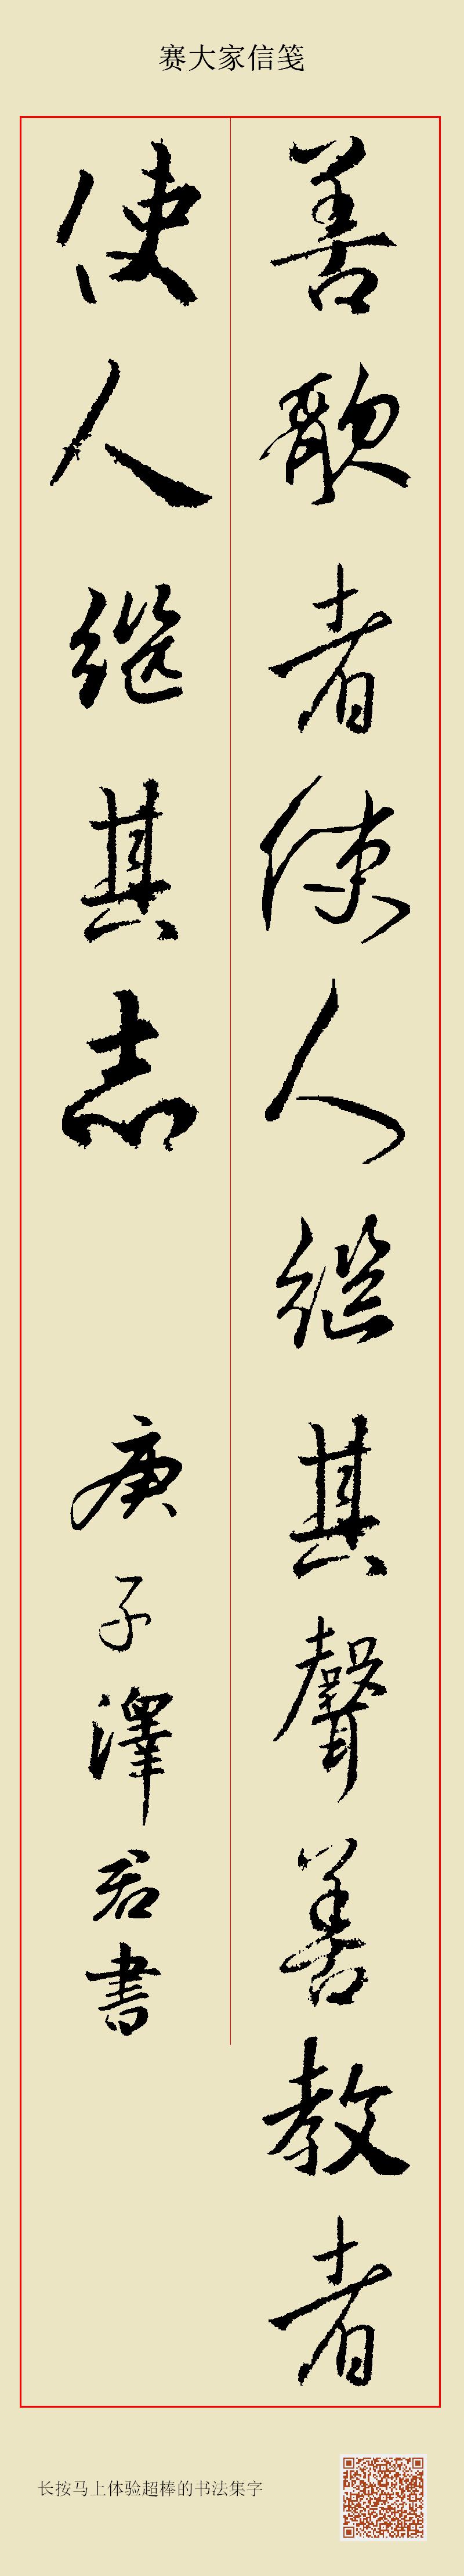 赛大家信笺
善歌者使人继其聲善教者
使人继其志 庚子澤君書
长按马上体验超棒的书法集字